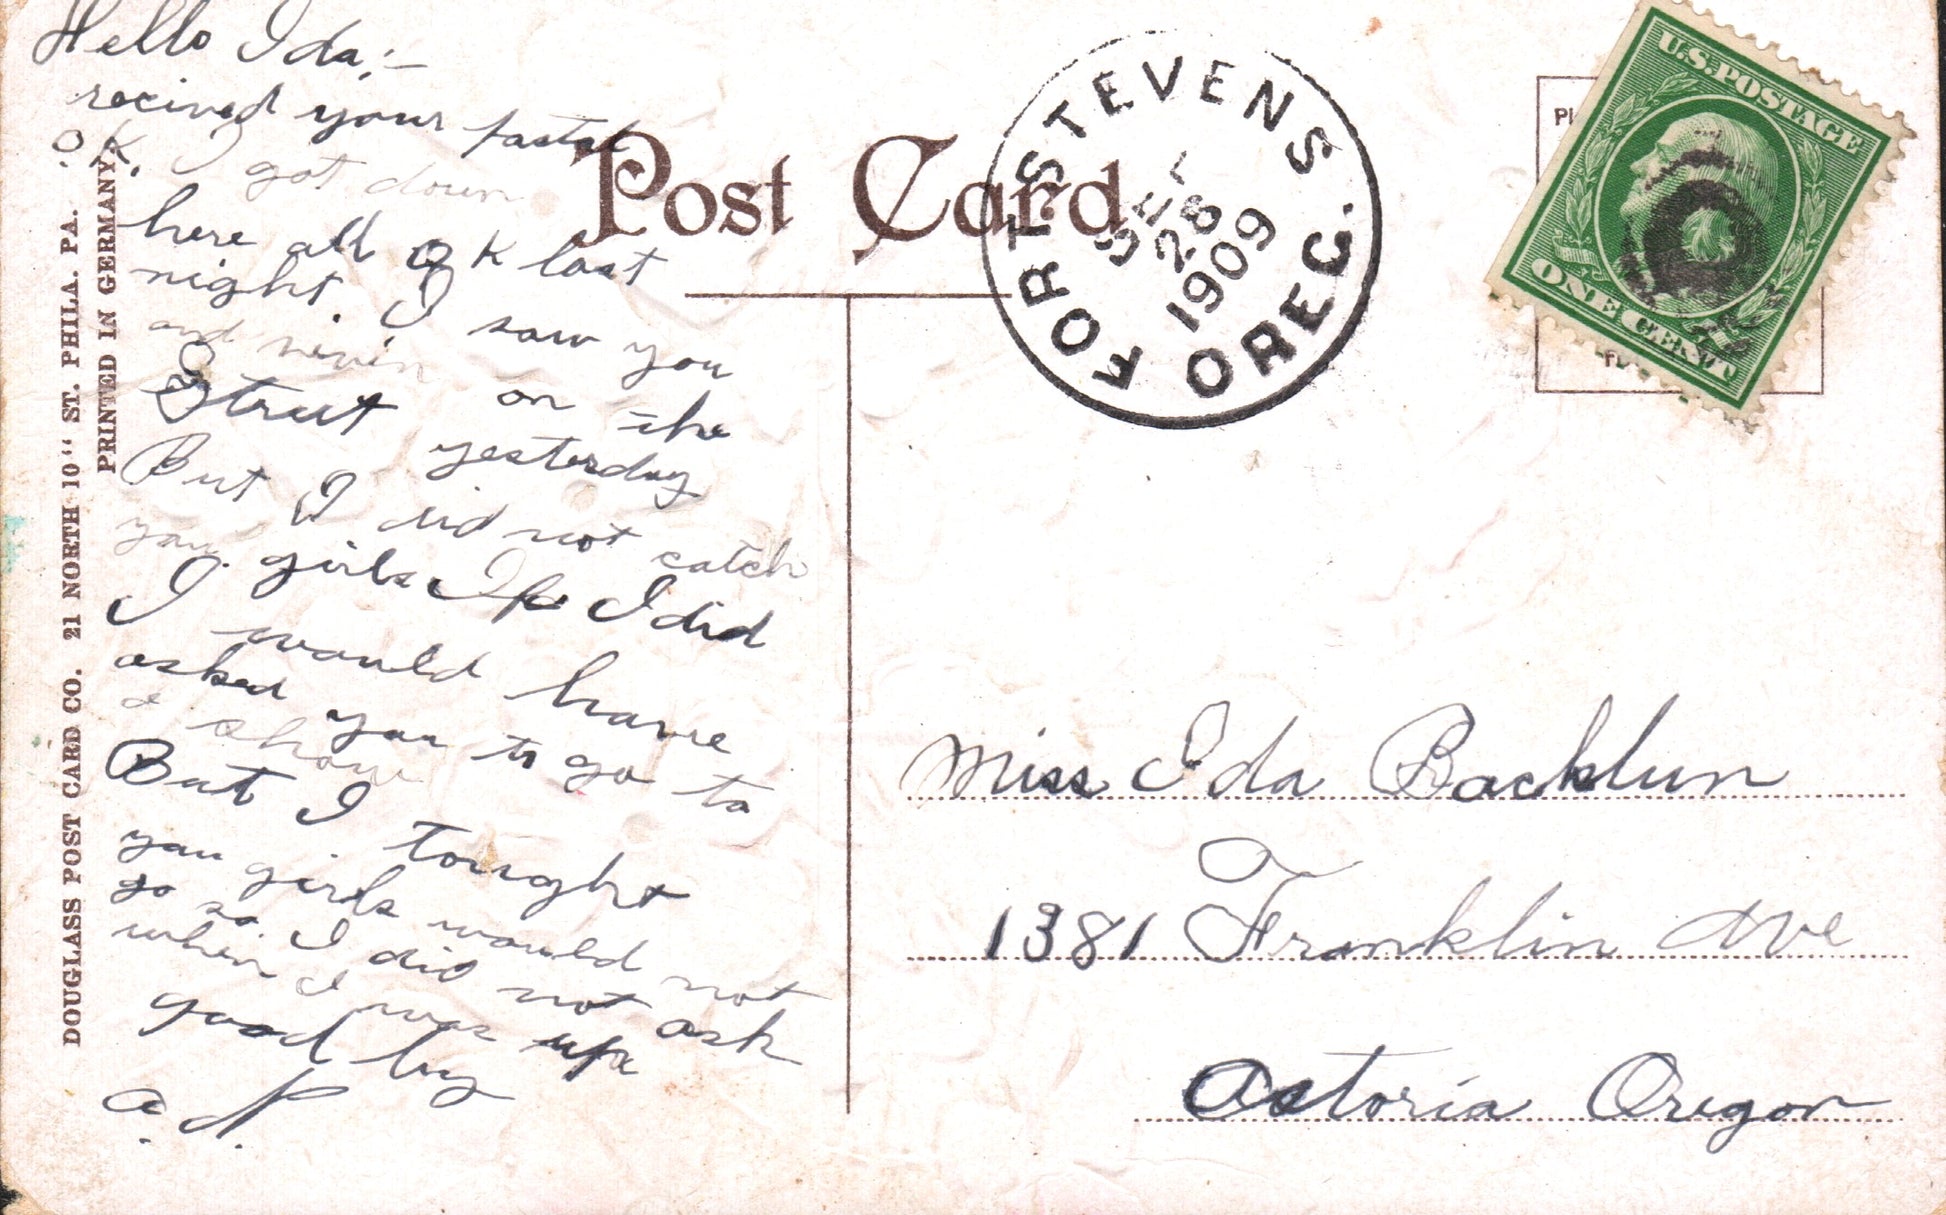 Hello Ida;–
recived your pastal
O.K. I got down
here all O K last
night. I saw you
and on the
Street yesterday
But I did not catch
you girls If I did
I would have
asked you to go to
a show
But I tought
you girls would not
go so I did not ask
when I was up
good by
a. P.
DOUGLASS POST CARD CO. 21 NORTH 10" ST. PHILA. PA.
PRINTED IN GERMANY.
Post Card
FORT STEVENS
28
1909
OREG.
U.S. POSTAGE
ONE CENT
Miss Ida Backlun
1381 Franklin Ave
Astoria Oregon